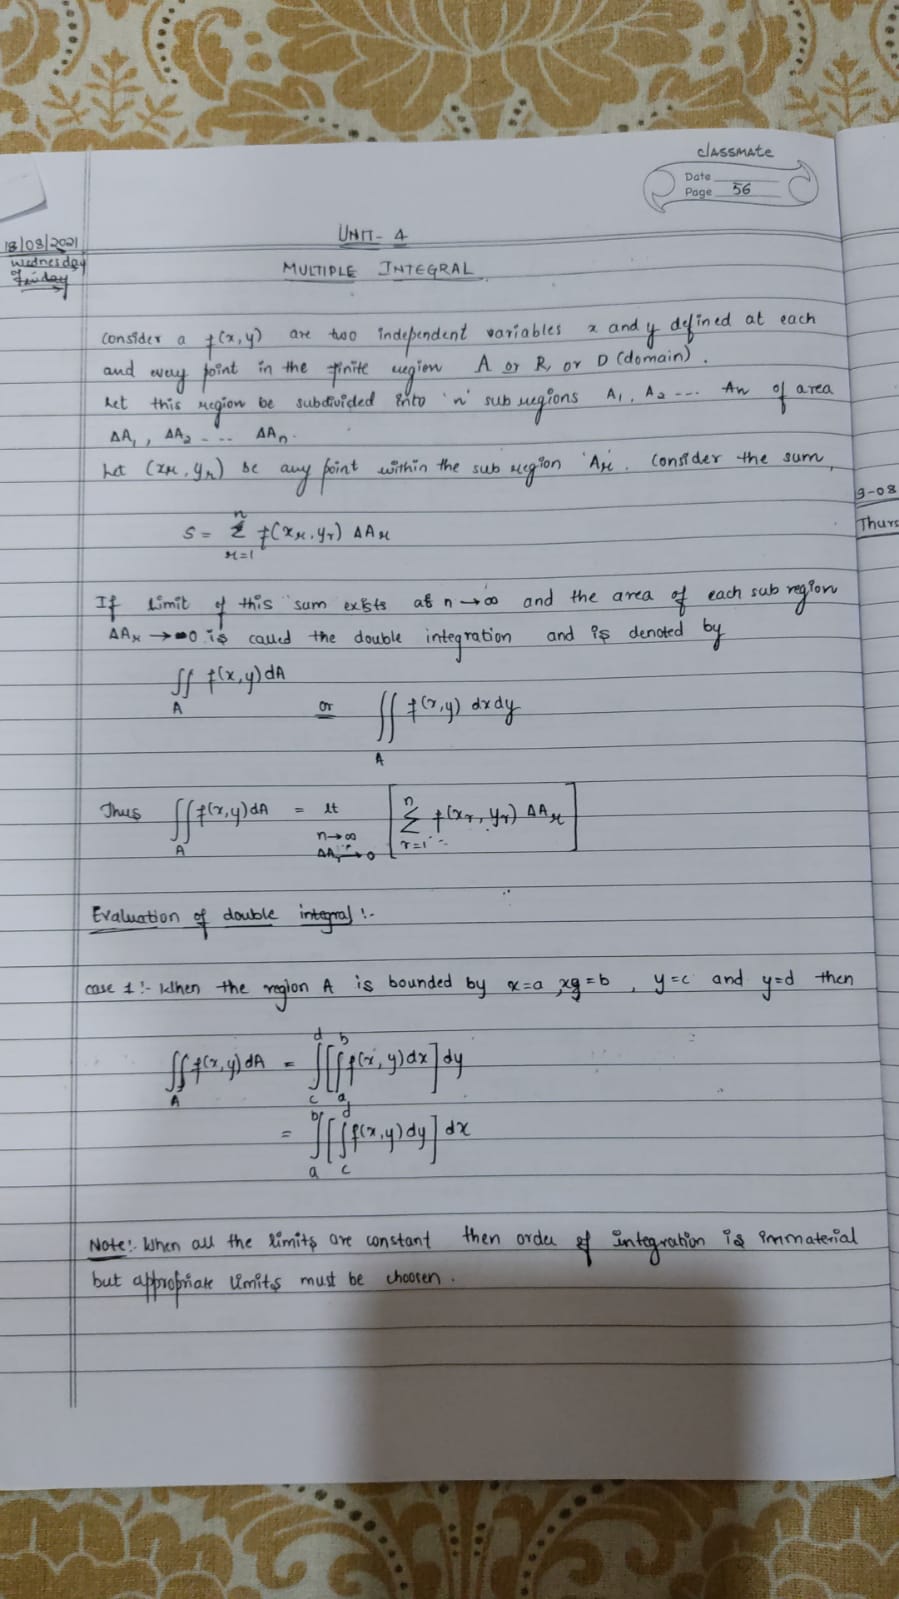 classmate
Date
Page 56
UNIT- 4
18/08/2021
Wednesday
Friday
MULTIPLE INTEGRAL
Consider a f(x,y) are two independent variables x and y defined at each
and every point in the finite region A or R, or D (domain).
Let this region be subdivided into 'n' sub regions A₁, A₂ --- An of area
ΔA₁, ΔA₂ - .. ΔAn.
Let (xr, yr) be any point within the sub region 'Ar. Consider the sum,
9-08
Thurs
S = n Σ r=1 f(xr, yr) ΔAr
If limit of this sum exists as n→∞ and the area of each sub region
ΔAr → 0 is called the double integration and is denoted by
∬_A f(x,y) dA or ∬_A f(x,y) dxdy
Thus ∬_A f(x,y) dA = lt n→∞ ΔAr→0 [ n Σ r=1 f(xr, yr) ΔAr ]
Evaluation of double integral :-
case 1 :- When the region A is bounded by x=a, x=b, y=c and y=d then
∬_A f(x,y) dA = ∫_c^d [∫_a^b f(x,y) dx] dy
= ∫_a^b [∫_c^d f(x,y) dy] dx
Note:- When all the limits are constant then order of integration is immaterial
but appropriate limits must be choosen.